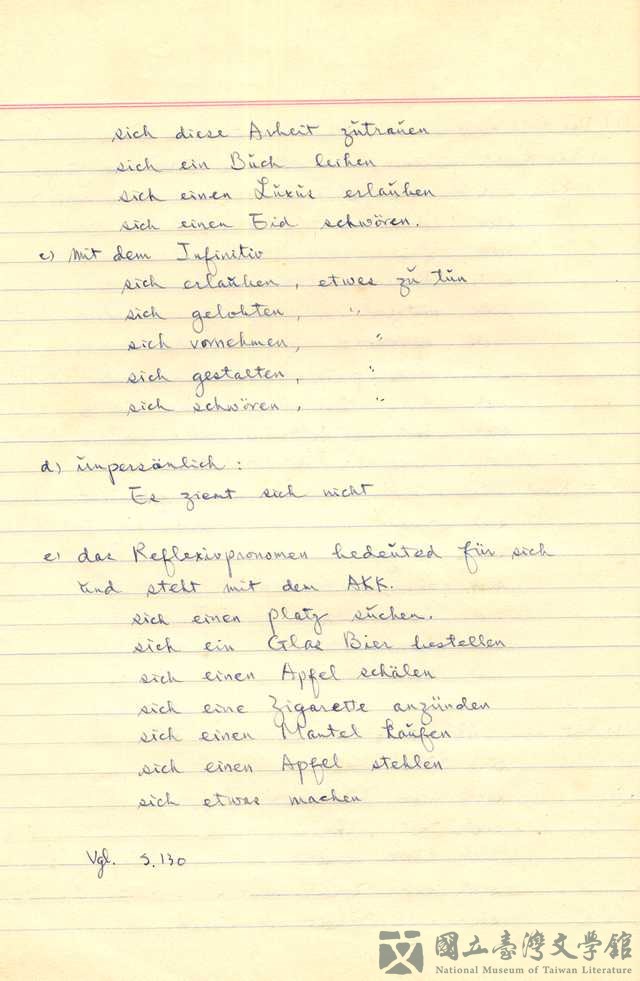 sich diese Arbeit zutrauen
sich ein Buch leihen
sich einen Luxus erlauben
sich einen Eid schwören.
c) mit dem Infinitiv
sich erlauben, etwas zu tun
sich geloben, "
sich vornehmen, "
sich gestatten, "
sich schwören, "
d) unpersönlich :
Es ziemt sich nicht
e) das Reflexivpronomen bedeuted für sich
und steht mit dem AKK.
sich einen Platz suchen.
sich ein Glas Bier bestellen
sich einen Apfel schälen
sich eine Zigarette anzünden
sich einen Mantel kaufen
sich einen Apfel stehlen
sich etwas machen
Vgl. S. 130
國立臺灣文學館
National Museum of Taiwan Literature